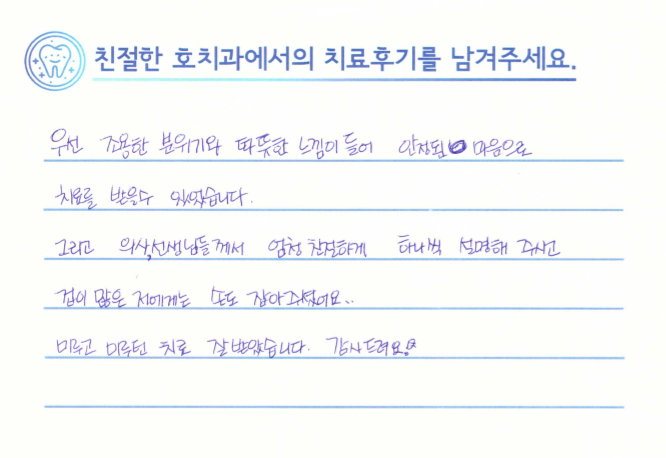 친절한 호치과에서의 치료후기를 남겨주세요.
우선 조용한 분위기와 따뜻한 느낌이 들어 안정된 마음으로
치료를 받을수 있었습니다.
그리고 의사,선생님들께서 엄청 친절하게 하나씩 설명해 주시고
겁이 많은 저에게는 손도 잡아주셨어요..
미루고 미루던 치료 잘 받았습니다. 감사드려요!